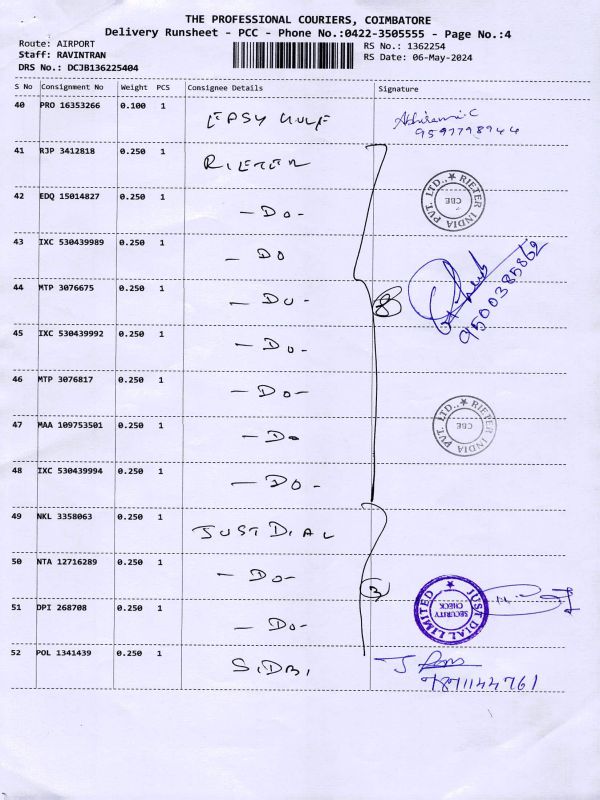 THE PROFESSIONAL COURIERS, COIMBATORE
Delivery Runsheet - PCC - Phone No.:0422-3505555 - Page No.:4
Route: AIRPORT
RS No.: 1362254
Staff: RAVINTRAN
RS Date: 06-May-2024
DRS No.: DCJB136225404
S No Consignment No Weight PCS Consignee Details Signature
40 PRO 16353266 0.100 1 EASY HUNF
41 RJP 3412818 0.250 1 RIETER
42 EDQ 15014827 0.250 1 -DO-
RIETER INDIA PVT. LTD., CBE
43 IXC 530439989 0.250 1 - DO
44 MTP 3076675 0.250 1 - DO - 8
9500385862
45 IXC 530439992 0.250 1 - DO-
46 MTP 3076817 0.250 1 - DO-
47 MAA 109753501 0.250 1 - DO
RIETER INDIA PVT. LTD., CBE
48 IXC 530439994 0.250 1 - DO -
49 NKL 3358063 0.250 1 JUST DIAL
50 NTA 12716289 0.250 1 - DO- 3
51 DPI 268708 0.250 1 - DO-
JUST DIAL LIMITED SECURITY CHECK
52 POL 1341439 0.250 1 SIDBI